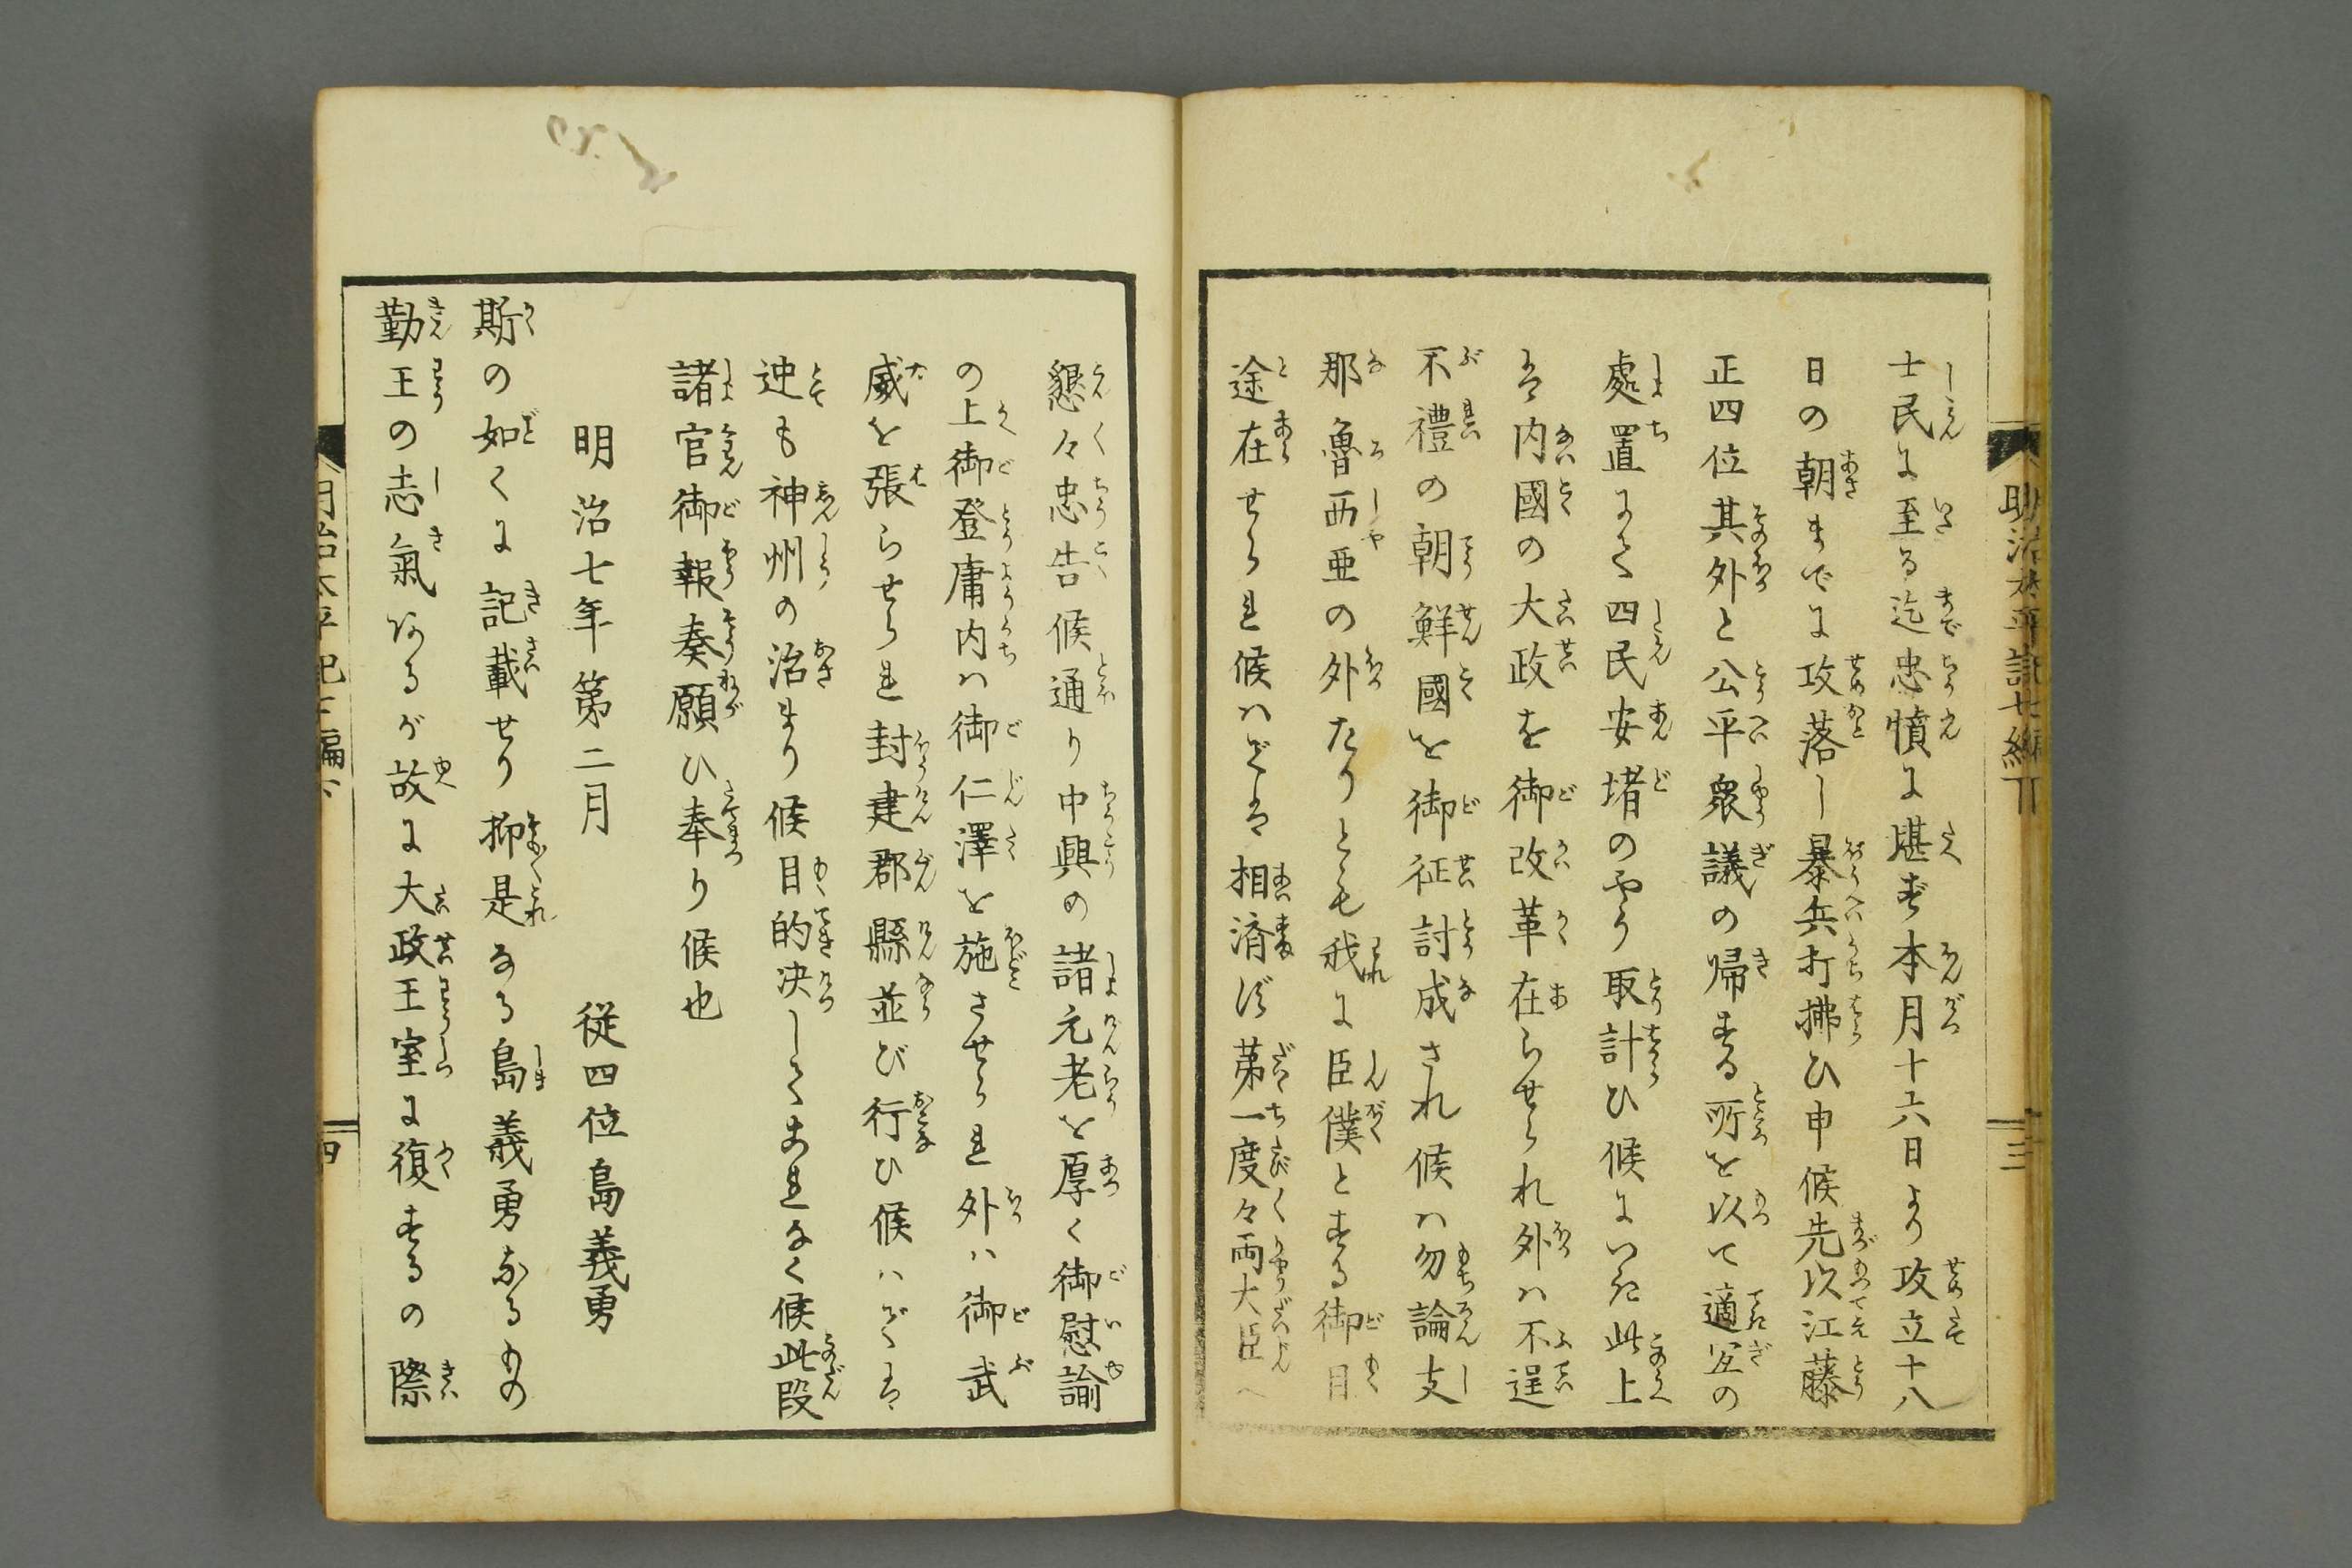 士民に至る迄忠憤に堪ず本月十六日より攻立十八
日の朝までに攻落し暴兵打拂ひ申候先以江藤
正四位其外と公平衆議の帰する所を以て適宜の
處置にて四民安堵のやり取計ひ候にいた此上
は内國の大政を御改革在らせられ外ハ不逞
不禮の朝鮮國を御征討成され候ハ勿論支
那魯西亜の外たりとも我に臣僕とする御目
途在せられ候ハでは相済ず第一度々両大臣へ
懇々忠告候通り中興の諸元老を厚く御慰諭
の上御登庸内ハ御仁澤を施させられ外ハ御武
威を張らせられ封建郡縣並び行ひ候ハでは
迚も神州の治まり候目的决してこれなく候此段
諸官御報奏願ひ奉り候也
明治七年第二月　従四位島義勇
斯の如くに記載せり抑是なる島義勇なるもの
勤王の志氣あるが故に大政王室に復するの際
明治太平記七編下
三
四